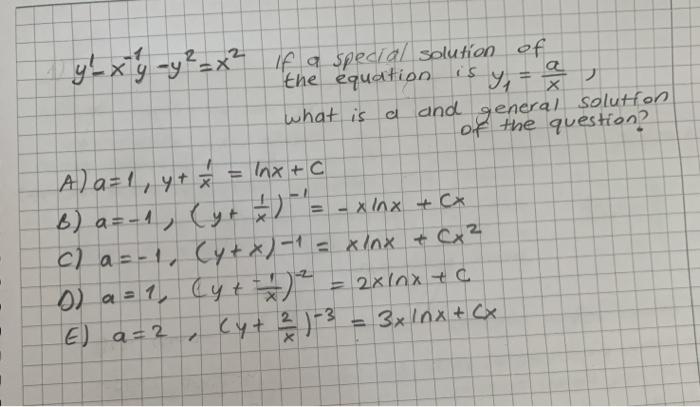 y' - x⁻¹y - y² = x² If a special solution of
the equation is y₁ = a/x ,
what is a and general solution
of the question?
A) a=1 , y + 1/x = lnx + C
B) a=-1 , (y + 1/x)⁻¹ = -xlnx + Cx
C) a=-1, (y+x)-1 = xlnx + Cx²
D) a=1, (y + -1/x)⁻² = 2xlnx + C
E) a=2 , (y + 2/x)⁻³ = 3xlnx + Cx